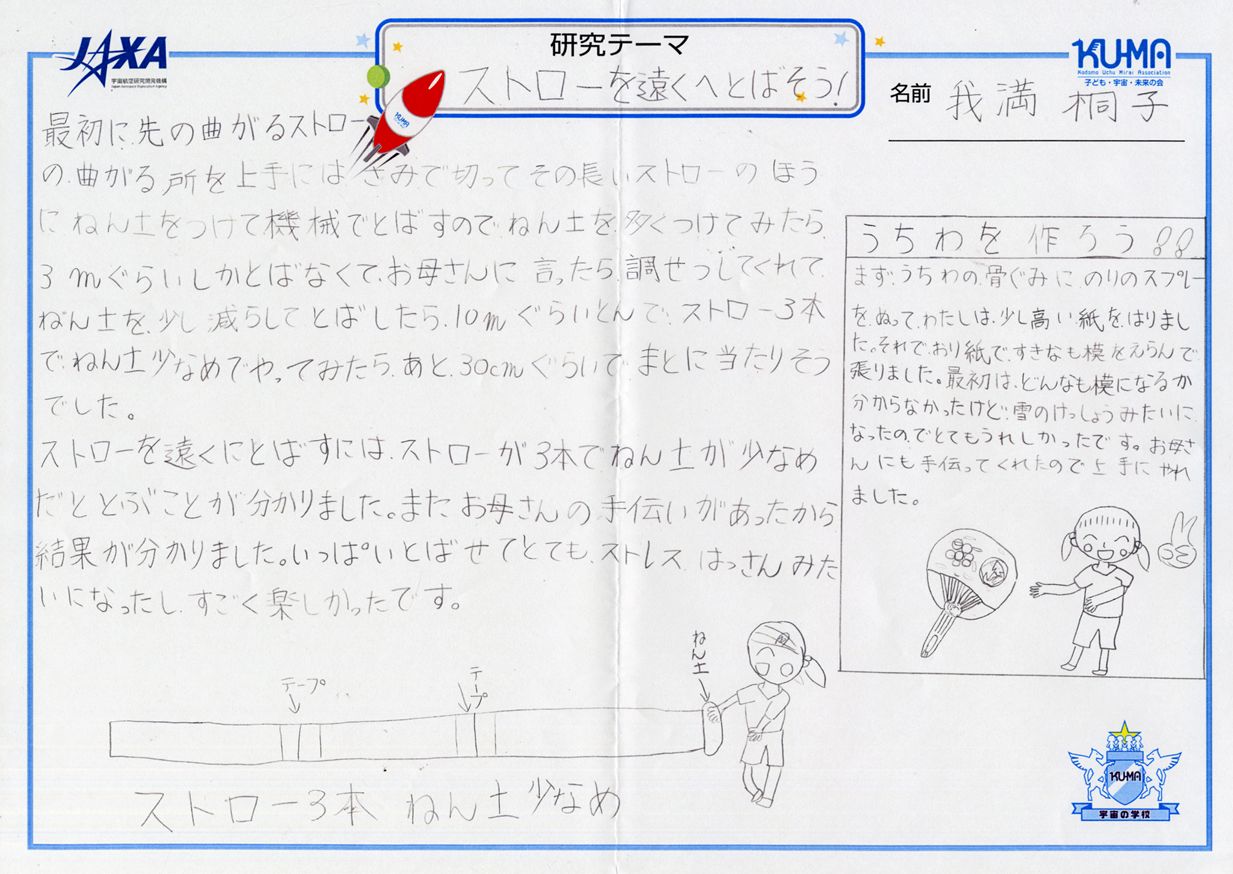 JAXA
宇宙航空研究開発機構
Japan Aerospace Exploration Agency
研究テーマ
ストローを遠くへとばそう!
KUMA
Kodomo Uchu Mirai Association
子ども・宇宙・未来の会
名前 我満 桐子
KUMA
最初に、先の曲がるストロー
の、曲がる所を上手にはさみで切ってその長いストローのほう
にねん土をつけて機械でとばすので、ねん土を、多くつけてみたら、
3mぐらいしかとばなくて、お母さんに言ったら、調せつしてくれて、
ねん土を、少し減らしてとばしたら、10mぐらいとんで、ストロー3本
で、ねん土少なめでやってみたら、あと、30cmぐらいで、まとに当たりそう
でした。
ストローを遠くにとばすには、ストローが3本でねん土が少なめ
だととぶことが分かりました。またお母さんの手伝いがあったから
結果が分かりました。いっぱいとばせてとても、ストレスはっさんみた
いになったし、すごく楽しかったです。
テープ
テープ
ねん土
ストロー3本 ねん土少なめ
うちわを作ろう!!
まず、うちわの、骨ぐみに、のりのスプレー
を、ぬって、わたしは、少し高い紙を、はりまし
た。それで、おり紙で、すきなも様をえらんで
張りました。最初は、どんなも模になるか
分からなかったけど、雪のけっしょうみたいに、
なったので、とてもうれしかったです。お母さ
んにも手伝ってくれたので上手にやれ
ました。
KUMA
宇宙の学校